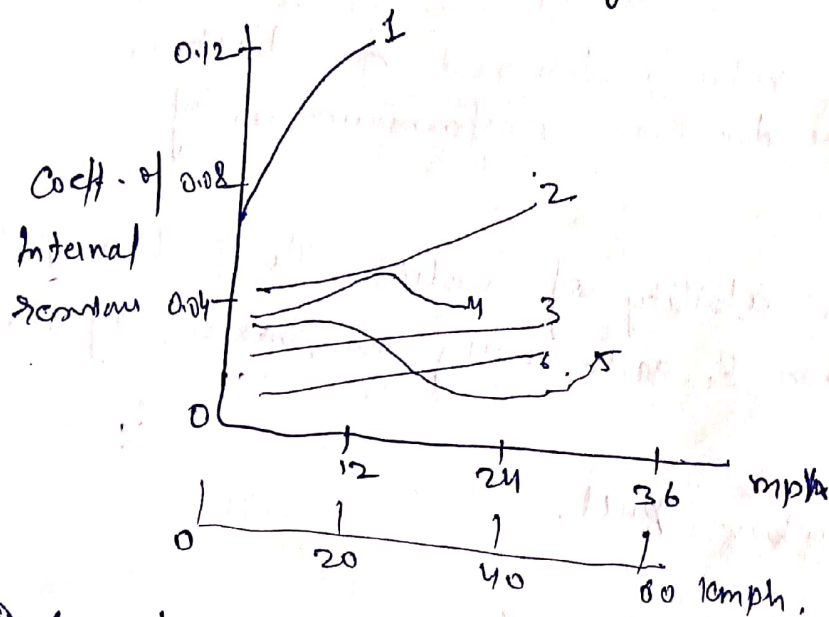 0.12
1
Coeff. of 0.08
2
Internal
0.04
4
3
6
5
0
12
24
36
mph
0
20
40
60 kmph.